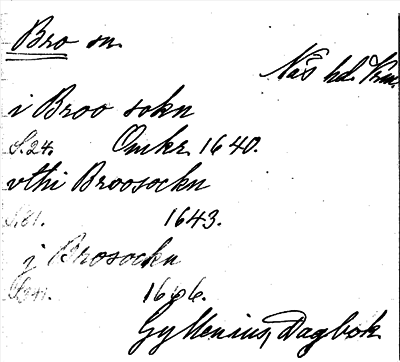 Bro sn.
Näs hd. Vrm.
i Broo sokn
S. 24. Omkr. 1640.
vthi Broosockn
S. 81. 1643.
j Brosockn
1666.
Gyllenius, Dagbok